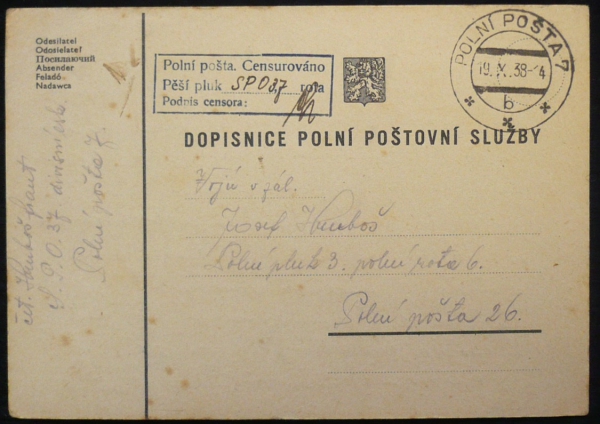 Odesílatel
Odosielateľ
Посилаючий
Absender
Feladó
Nadawca
čet. Hruboš
S. P. O. 37
Polní pošta 7.
Polní pošta. Censurováno
Pěší pluk SPO 37 rota
Podpis censora:
POLNÍ POŠTA 7
19. IX. 38 - 4
b
DOPISNICE POLNÍ POŠTOVNÍ SLUŽBY
Voj. v zál.
Josef Hruboš
Polní pluk 3. polní rota 6.
Polní pošta 26.